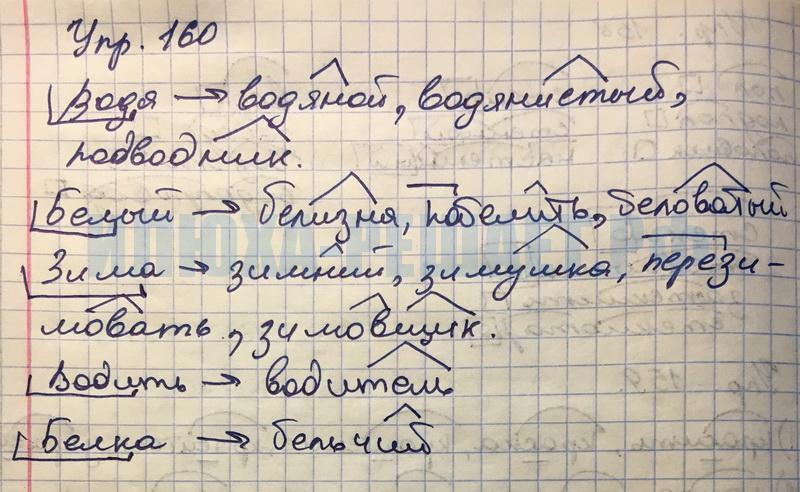 Упр. 160
Водя → водяной, водянистый,
подводник.
Белый → белизна, побелить, беловатый
Зима → зимний, зимушка, перези-
мовать, зимовщик.
Водить → водитель
Белка → бельчий